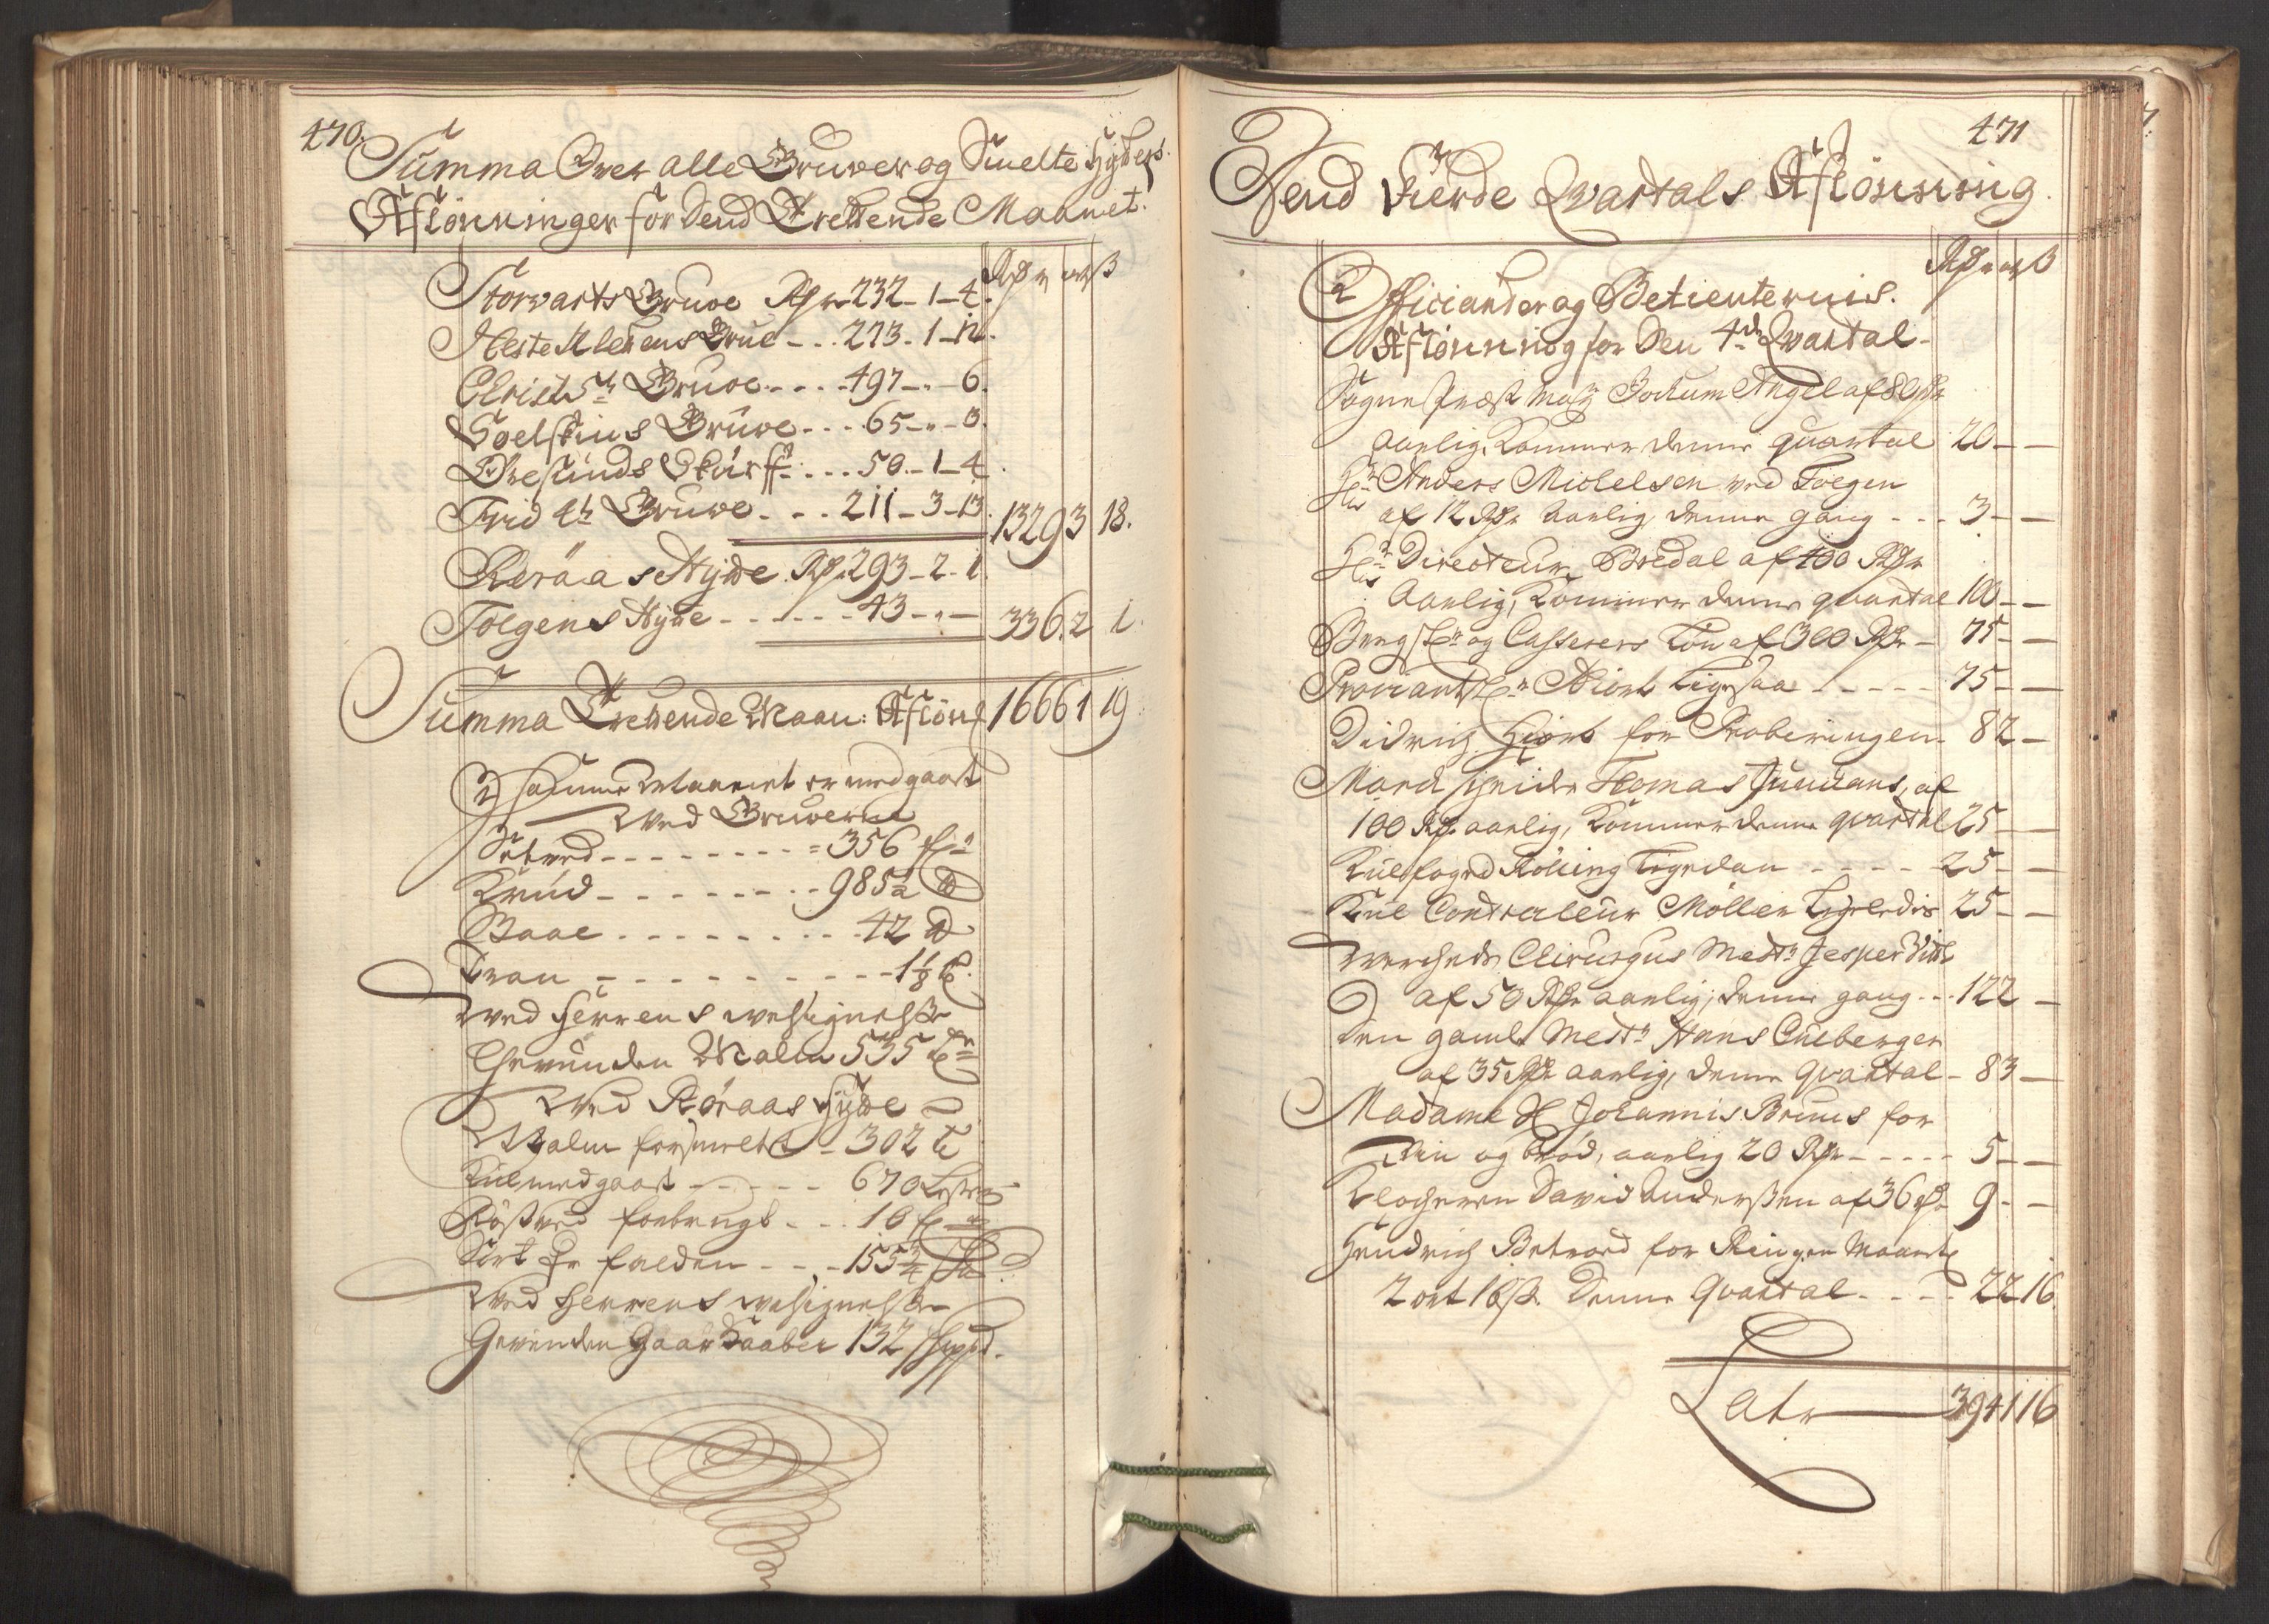 470.
Summa Over alle Gruver og Smelte Hytters
Aflönninger for Dend Trettende Maanet.
Rdr ort ß
Storvarts Gruve Rdr 232 - 1 - 4.
Heste Klettens Grue - - 273 - 1 - 12.
Christ 5te Gruve - - - - 497 - " - 6.
Soelskins Gruve - - - 65 - " - 3.
Øresunds Skurff - - - 50 - 1 - 4.
Frid 4te Gruve - - - 211 - 3 - 13. 1329 3 18.
Reröaas Hytte Rdr 293 - 2 - 1.
Tolgens Hytte - - - - - - 43 - " - 336. 2 1.
Summa Trettende Maan: Aflön 1666 1 19
I samme Maanet er medgaaet
Ved Gruverne
Setved - - - - - - - - 356 fn
Krud - - - - - - - 985½ ℔
Baae - - - - - - - - 42 ℔
Tran - - - - - - - - - 1⅛ t
Ved Herrens velsignelse
Gevunden Malm 535 tr
Ved Röraas Hytte
Malm forsmeltet - 302 t
Kul medgaaet - - - - - 670 Lester
Röstved forbrugt - - - 10 f
Sort Kr falden - - - 155¾ Sk
Ved Herrens velsignelse
Gevunden Gaar Kaaber 132 Skippd.
471
Dend Fierde Qvartals Aflönning.
Rdr ort ß
Officianter og Betienternis.
Aflönning for Den 4de Qvartal.
Sogne Præst Mag Jochum Angel af 80 Rdr
Aarlig, Kommer denne quartal 20 - -
Hr Anders Michelsen ved Tolgen
af 12 Rdr Aarlig denne gang - - - 3 - -
Hr Directeur Bredal af 400 Rdr
Aarlig, Kommer denne qvartal 100 - -
Bergskr og Casserers Lön af 300 Rdr - 75 - -
Proviantskr Hiort ligesaa - - - - - 75 - -
Didrich Hiort for Proberingen - 8 2 -
Marckscheider Thomas Juuäns, af
100 Rdr aarlig, Kommer denne qvartal 25 - -
Kulfoged Röling ligedan - - - - 25 - -
Kul Contraleur Möller ligeledis 25 - -
Verchets Chirurgus Mestr Jesper Vith
af 50 Rdr aarlig, denne gang - - - 12 2 -
Den gamle Mestr Hans Culberger
af 35 Rdr aarlig, denne Qvartal - 8 3 -
Madame Sl Johannis Bruns for
Vin og Bröd, aarlig 20 Rdr - - - - - 5 - -
Klocheren David Anderssen af 36 Rdr 9 - -
Hendrich for Ringen Maanetl
2 ort 16 ß. Denne Qvartal - - - - 2 2 16.
Latr 394 1 16